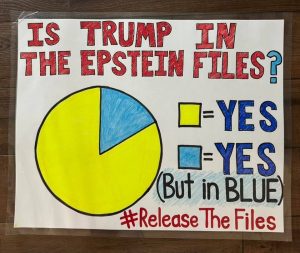 IS TRUMP IN
THE EPSTEIN FILES?
=YES
=YES
(But in BLUE)
#ReleaseTheFiles